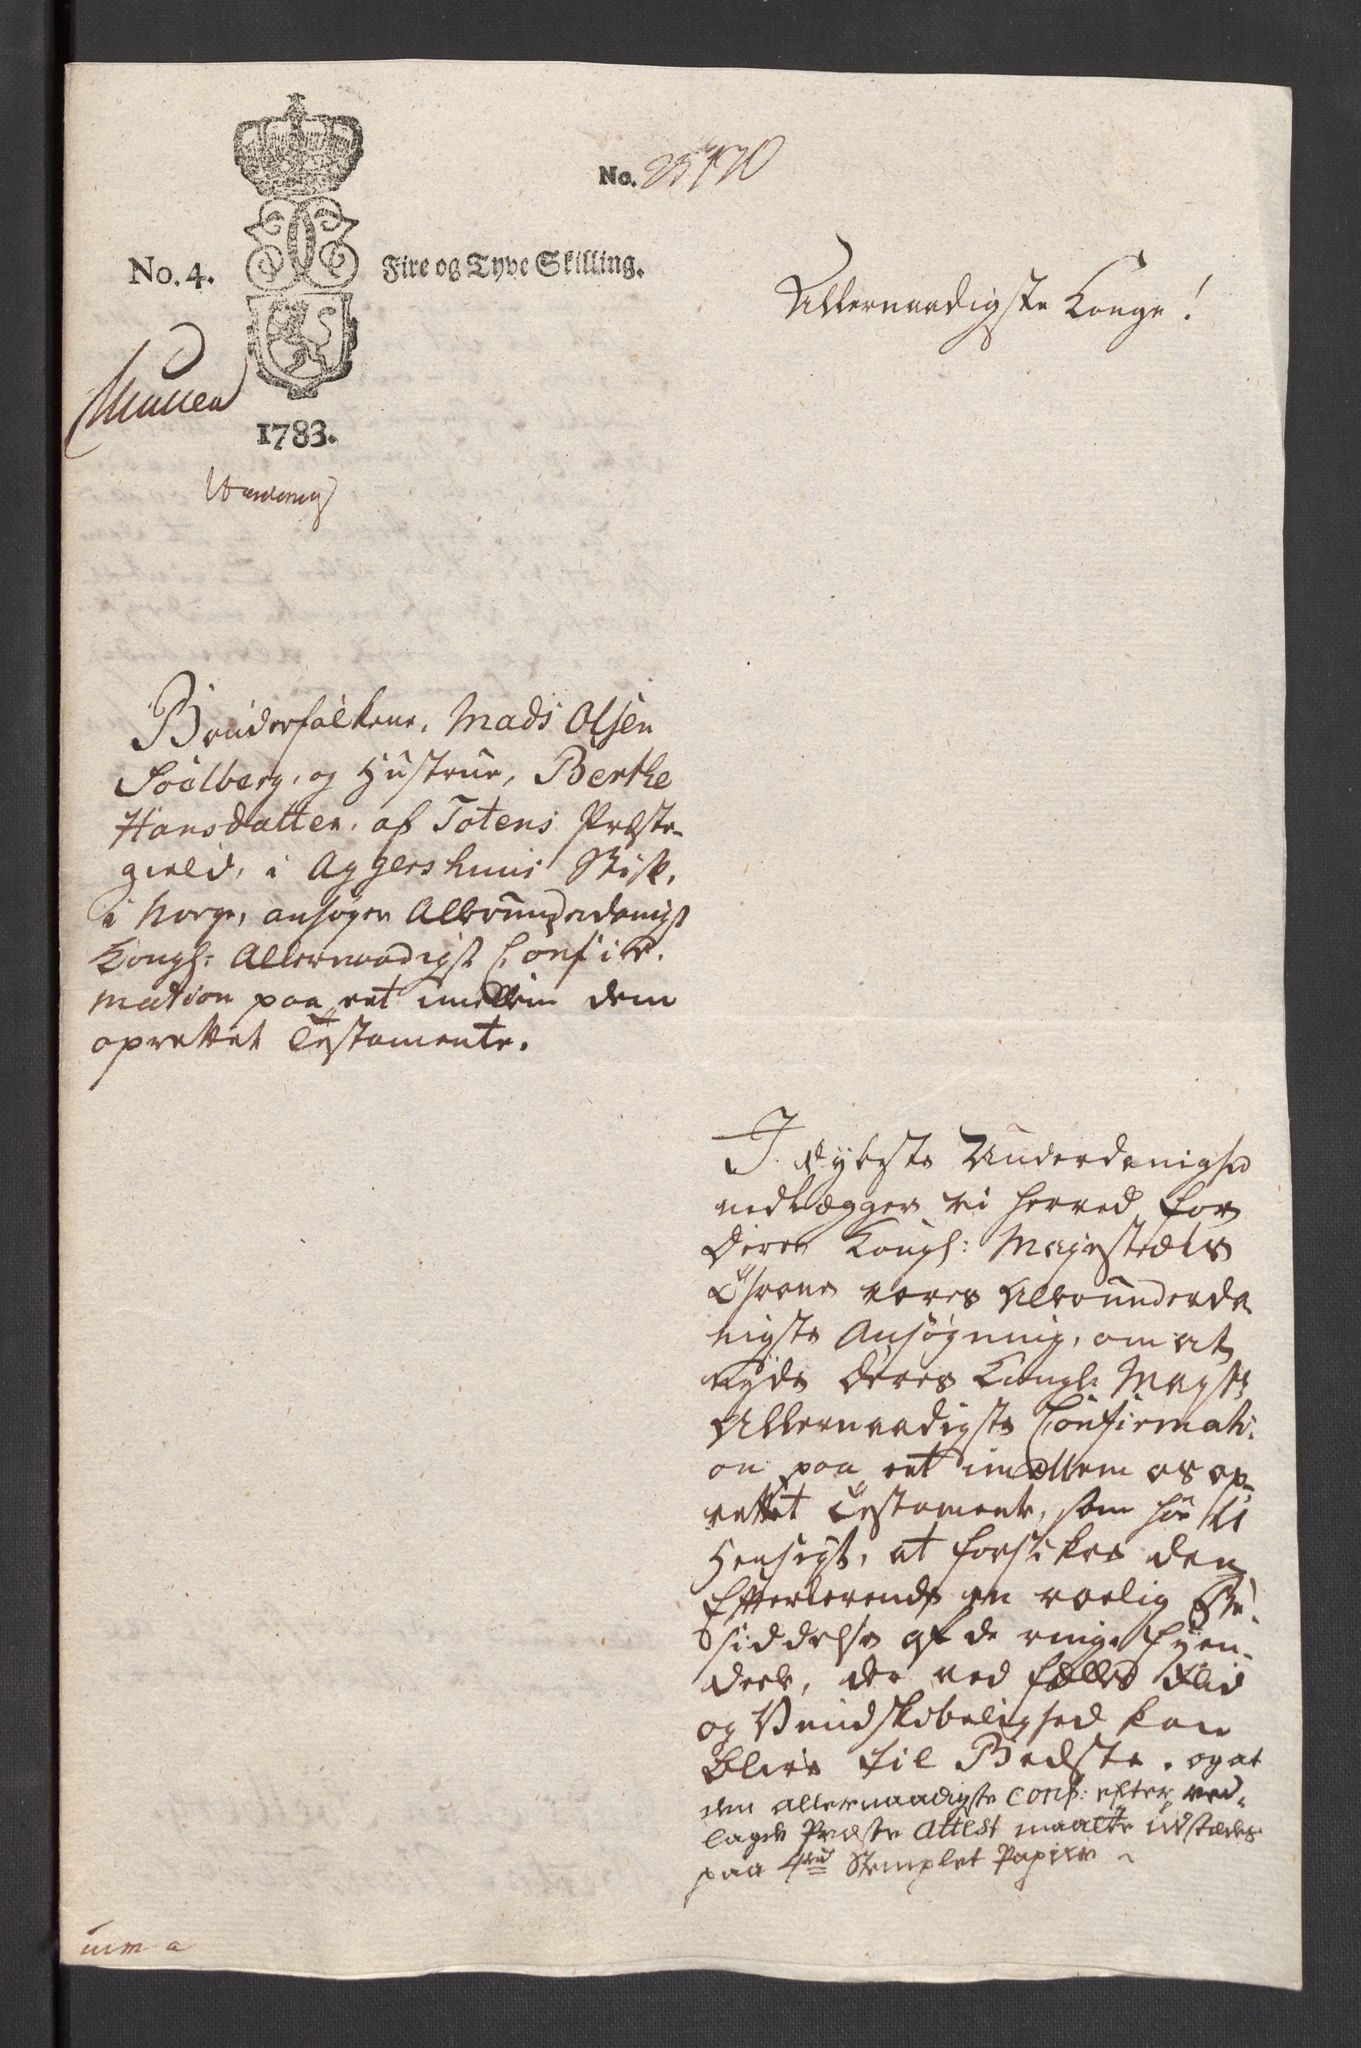 No. 25470
No. 4.
Fire og Tyve Skilling.
Allernaadigste Konge!
1783.
Bønderfolkene, Mads Olsen
Soelberg, og Hustrue, Berthe
Hansdatter, af Totens Præste-
gield, i Aggershuus Stift,
i Norge, ansøger Allerunderdanigst
Kongl: Allernaadigst Confir-
mation paa eet imellem dem
oprettet Testamente.
I dybeste Underdanighed
nedlægger vi herved for
Deres Kongl: Majestæts
Throne vores Allerunderda-
nigste Ansøgning, om at
nyde Deres Kongl: Mayts
Allernaadigste Confirmati-
on paa eet imellem os op-
rettet Testamente, som har til
Hensigt, at forsikre den
Efterlevende en roelig Be-
siddelse af de ringe Eyen-
deele, der ved fælles Flid
og Vindskibelighed kan
blive til Bedste. og at
den allernaadigste Conf: efter ved-
lagde Præste Attest maatte udstædes
paa 4de Stemplet Papiir